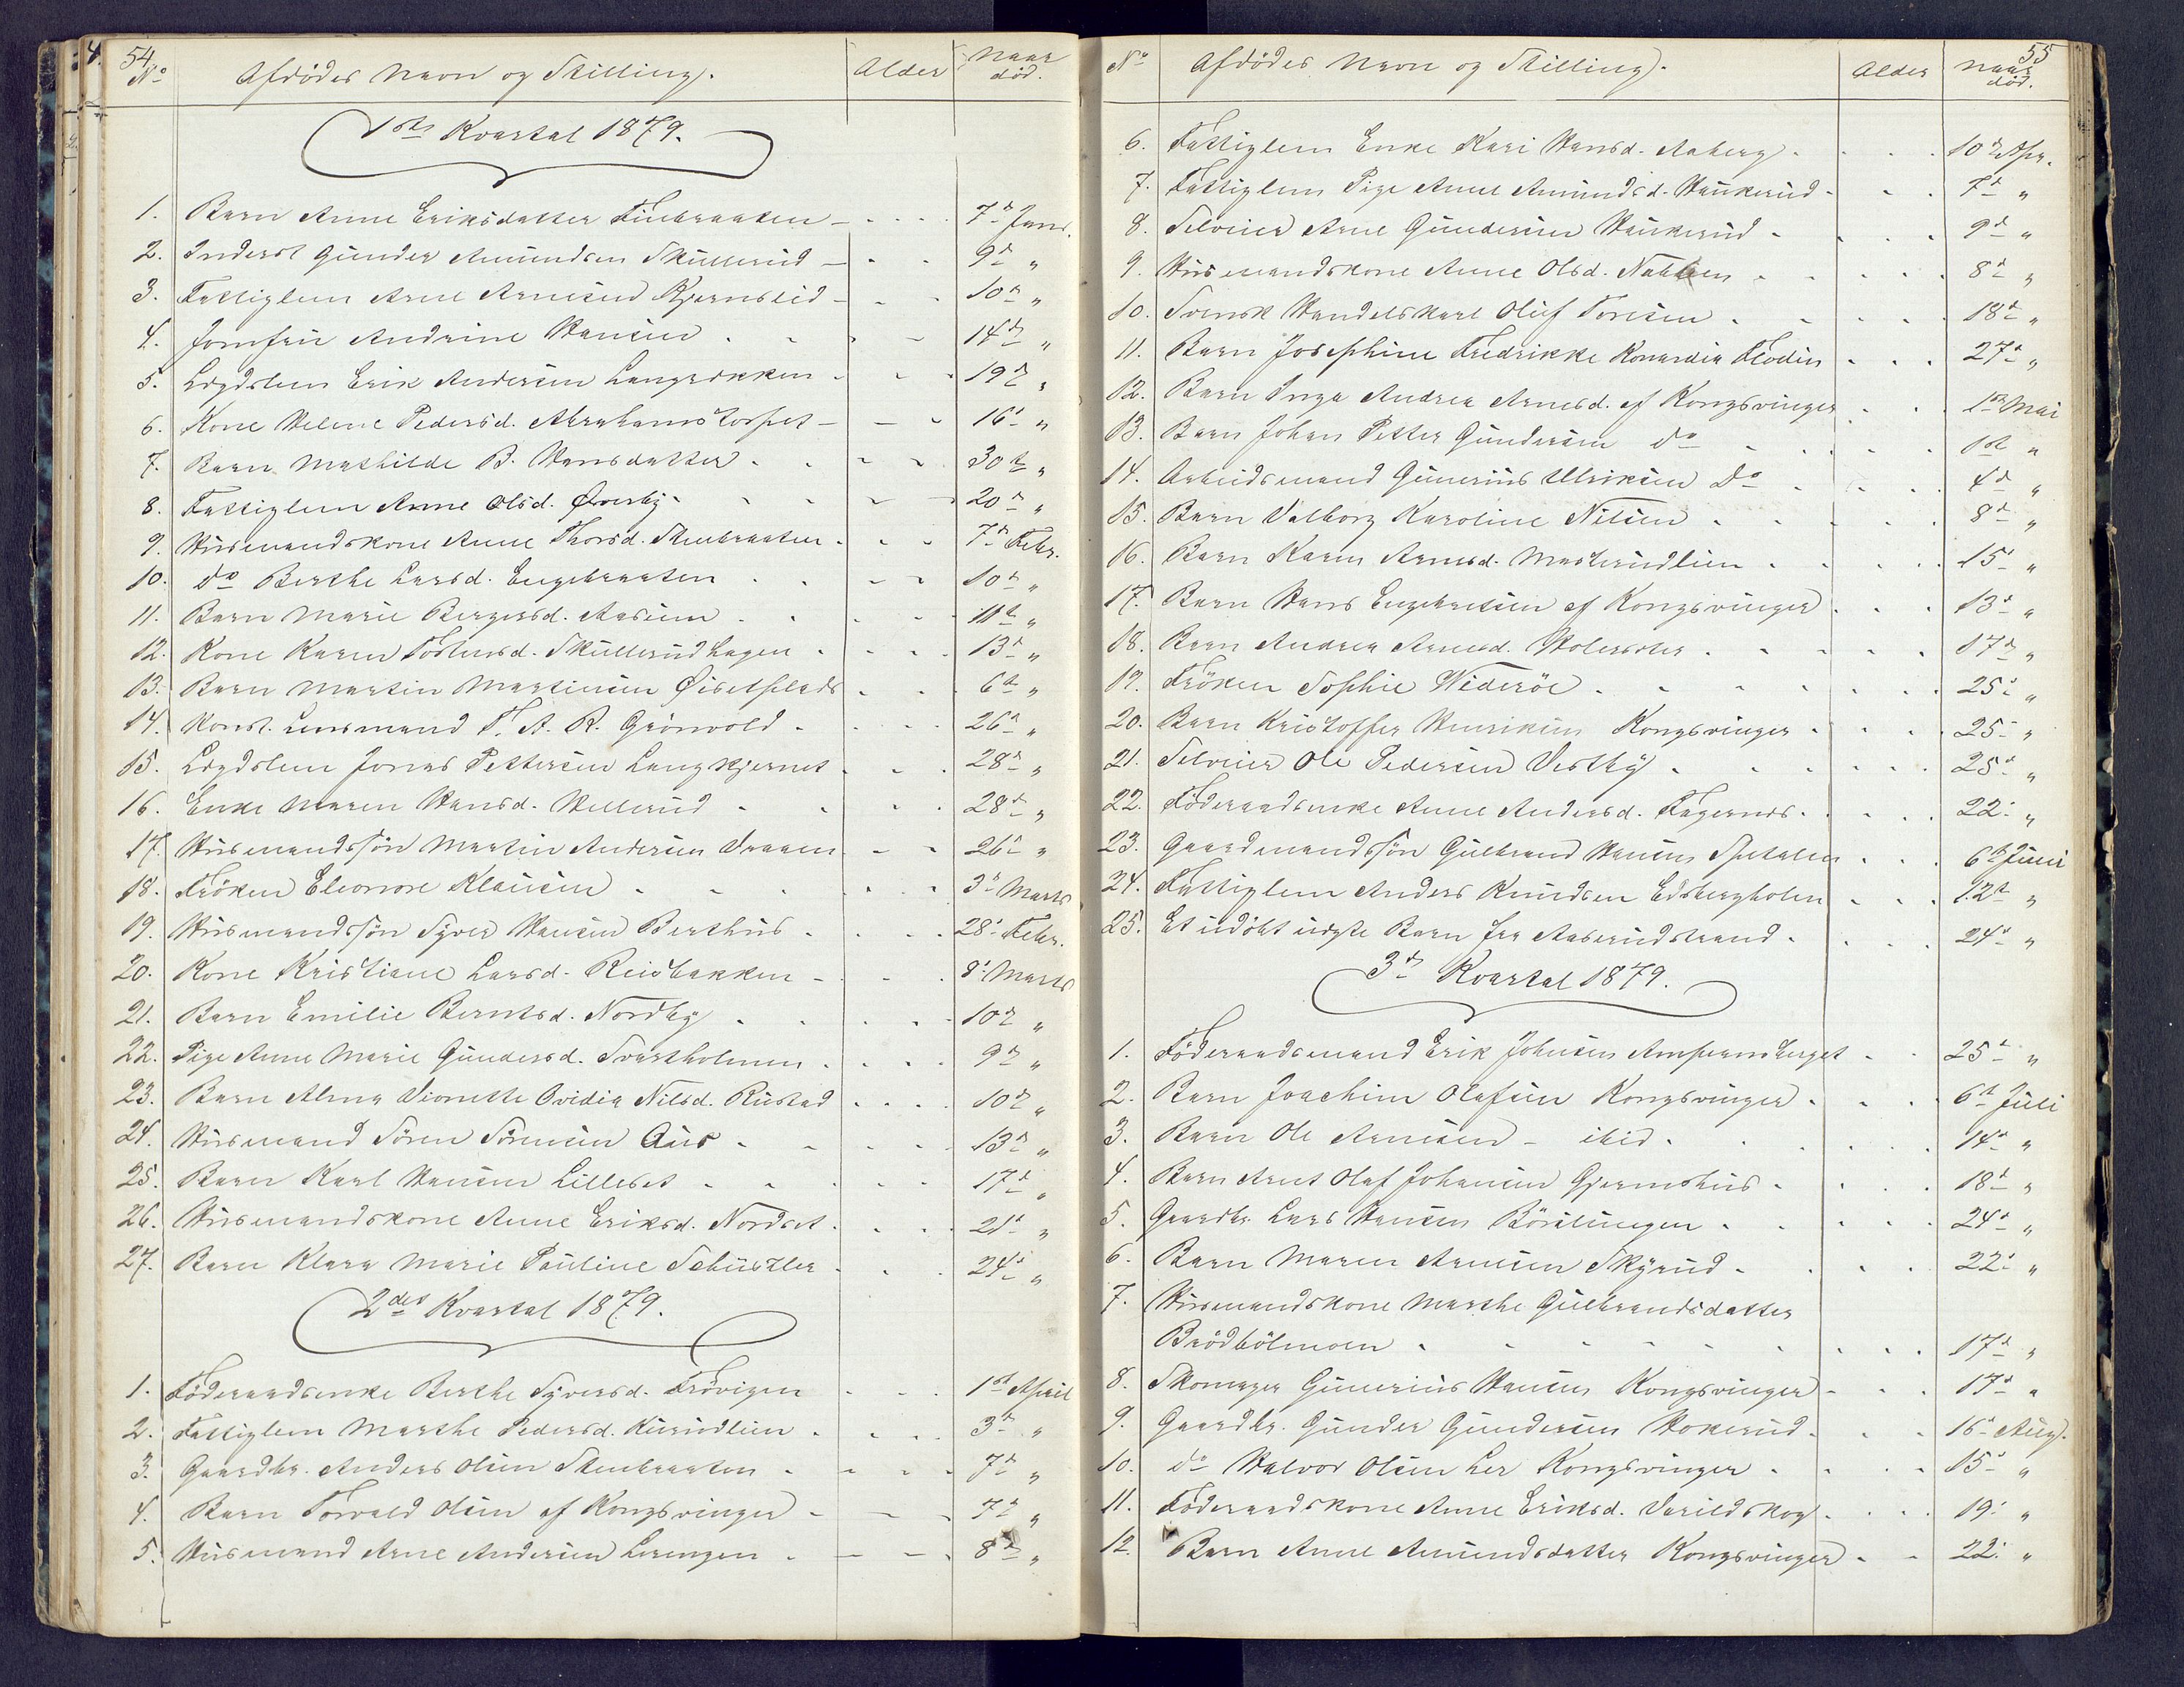 54
No Afdödes Navn og Stilling. Alder Naar död.
1ste Kvartal 1879.
1. Barn Anne Eriksdatter Finbraaten - - - 7de Janr.
2. Inderst Gunder Amundsen Skullerud - - - 9de "
3. Fattiglem Arne Arnesen Kjernslid - - - 10de "
4. Jomfru Andrine Hansen - - - 14de "
5. Lægdslem Erik Andersen - - - 19de "
6. Kone Helene Pedersd. Abrahamstorpet - - - 16de "
7. Barn Mathilde B. Hansdatter - - - 30te "
8. Fattiglem Anne Olsd. Øverby - - - 20de "
9. Husmandskone Anne Thorsd. Stenbraaten - - - 7de Febr.
10. do Berthe Larsd. Engebraaten - - - 10de "
11. Barn Marie Bergersd. Aasum - - - 11te "
12. Kone Karen Torstensd. Skullerudhagen - - - 13de "
13. Barn Martin Martinsen Øisetplads - - - 6te "
14. Konst. Lensmand T. A. R. Grönvold - - - 26de "
15. Lægdslem Jonas Pettersen Langkjernet - - - 28de "
16. Enke Maren Hansd. Hellerud - - - 28de "
17. Husmandssön Martin Andersen Vraaen - - - 26de "
18. Fröken Eleonore Klausen - - - 3de Marts
19. Husmandssön Syver Hansen Berthus - - - 28de Febr.
20. Kone Kristiane Larsd. Reisbakken - - - 8de Marts
21. Barn Emilie Berntsd. Nordby - - - 10de "
22. Pige Anne Marie Gundersd. Svartholmen - - - 9de "
23. Barn Alma Vionette Ovidia Nilsd. Rustad - - - 10de "
24. Husmand Sören Sörensen Aus - - - 13de "
25. Barn Karl Hansen Lilleset - - - 17de "
26. Husmandskone Anne Eriksd. Nordset - - - 21de "
27. Barn Klara Marie Pauline Schüszler - - - 24de "
2det Kvartal 1879.
1. Föderaadsenke Berthe Syversd. Frövigen - - - 1ste April
2. Fattiglem Marthe Pedersd. Kurudlien - - - 3de "
3. Gaardbr. Anders Olsen Stenbraaten - - - 7de "
4. Barn Torvald Olsen af Kongsvinger - - - 7de "
5. Husmand Arne Andersen Lerengen - - - 8de "
55
No Afdödes Navn og Stilling. Alder Naar död.
6. Fattiglem Enke Kari Hansd. Aaberg - - - 10de Apr.
7. Fattiglem Pige Anne Amundsd. Haukerud - - - 7de "
8. Selveier Arne Gundersen Haukerud - - - 9de "
9. Husmandskone Anne Olsd. - - - 8de "
10. Svensk Handelskarl Oluf Toresen - - - 18de "
11. Barn Josephine Fredrikke Konardia Flodin - - - 27de "
12. Barn Inga Andrea Arnesd. af Kongsvinger - - - 1ste Mai
13. Barn Johan Petter Gundersen do - - - 1ste "
14. Arbeidsmand Gunerius Ulriksen do - - - 4de "
15. Barn Valborg Karoline Nilsen - - - 8de "
16. Barn Karen Arnesd. Masterudlien - - - 15de "
17. Barn Hans Engebretsen af Kongsvinger - - - 13de "
18. Barn Andrea Arnesd. - - - 17de "
19. Fröken Sophie Wideröe - - - 25de "
20. Barn Kristoffer Henriksen Kongsvinger - - - 25de "
21. Selveier Ole Pedersen Vestby - - - 25de "
22. Föderaadsenke Anne Andersd. Fagernes - - - 22de "
23. Gaardmandssön Gulbrand Hansen Spetalen - - - 6te Juni
24. Fattiglem Anders Knudsen Edsbergholen - - - 12te "
25. Et udöbt uægte Barn fra Aaserudstrand - - - 24de "
3de Kvartal 1879.
1. Föderaadsmand Erik Johnsen Ampiansberget - - 25de "
2. Barn Joachim Olafsen Kongsvinger - - - 6te Juli
3. Barn Ole Arnesen - ibid - - - 14de "
4. Barn Arnt Olaf Johansen Gjermshus - - - 18de "
5. Gaardbr. Lars Hansen Börslungen - - - 24de "
6. Barn Maren Arnesen Skyrud - - - 22de "
7. Husmandskone Marthe Gulbrandsdatter
Brödbölmoen - - - 17de "
8. Skomager Gunerius Hansen Kongsvinger - - - 17de "
9. Gaardbr. Gunder Gundersen Hokerud - - - 16de Aug.
10. do Halvor Olsen Ler Kongsvinger - - - 15de "
11. Föderaadskone Anne Eriksd. Varildskog - - - 19de "
12. Barn Anne Amundsdatter Kongsvinger - - 22de "